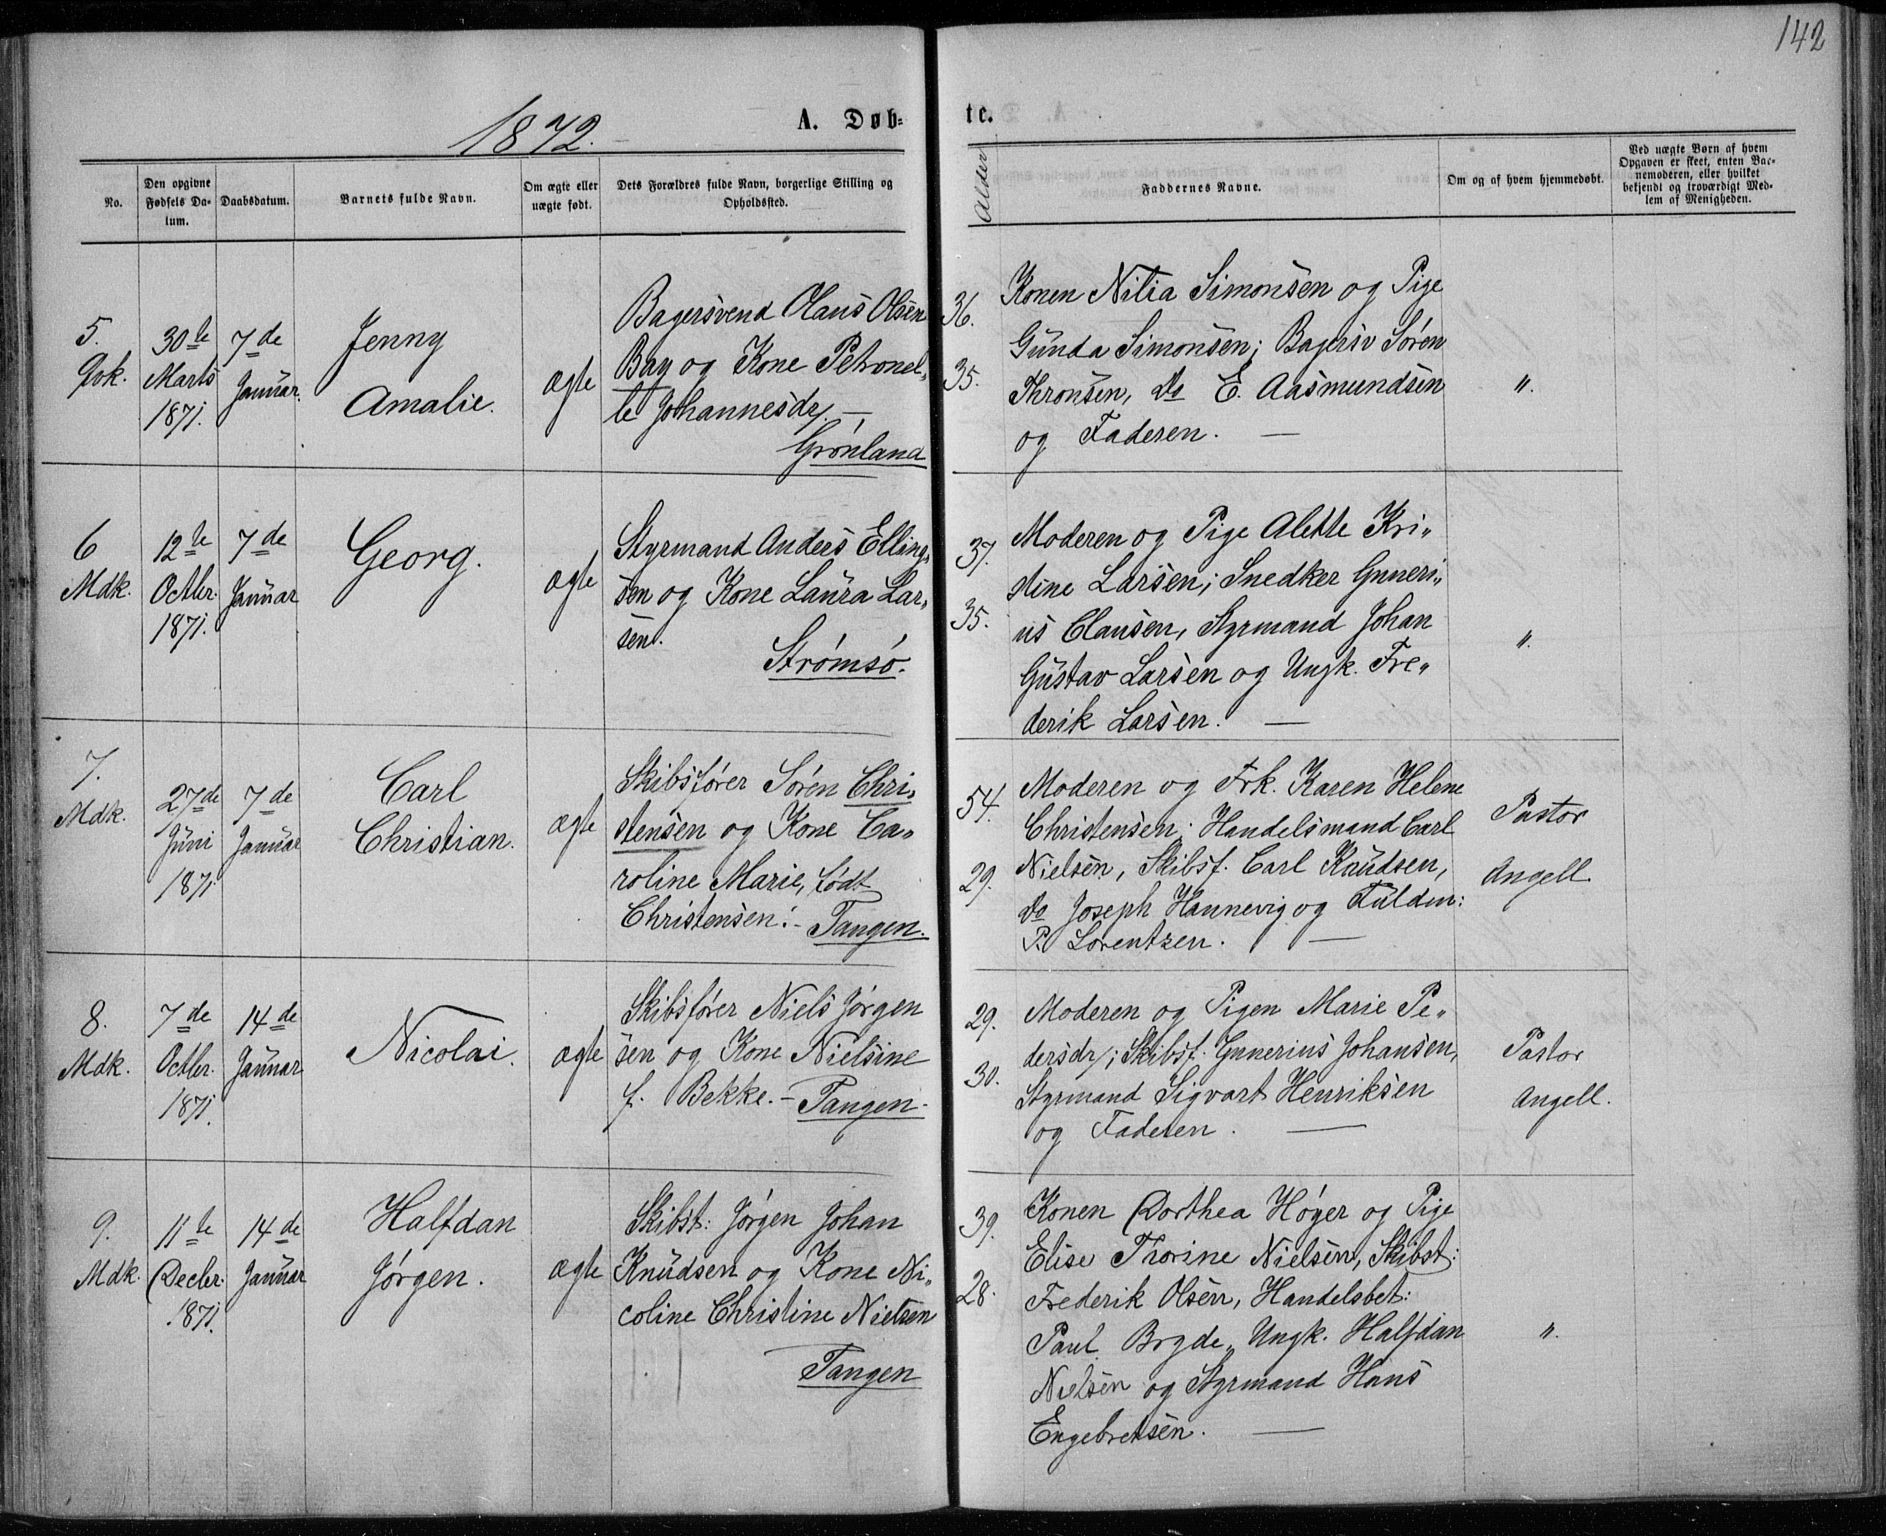 142
1872.
A. Døb-
te.
No.
Den opgivne
Fødsels Da-
tum.
Daabsdatum.
Barnets fulde Navn.
Om ægte eller
uægte født.
Dets Forældres fulde Navn, borgerlige Stilling og
Opholdssted.
Alder
Faddernes Navne.
Om og af hvem hjemmedøbt.
Ved uægte Børn af hvem
Opgaven er skeet, enten Bar-
nemoderen, eller hvilket
bekjendt og troværdigt Med-
lem af Menigheden.
5.
Qvk.
30te
Marts
1871.
7de
Januar.
Jenny
Amalie.
ægte
Bagersvend Olaus Olsen
Bay og Kone Petronel„
le Johannesdr. —
Grønland
36.
35.
Konen Nilia Simonsen og Pige
Gunda Simonsen; Bagersv Søren
Thronsen, Do E. Aasmundsen
og Faderen. —
„.
6
Mdk.
12te
Octbr.
1871.
7de
Januar
Georg.
ægte
Styrmand Anders Elling„
sen og Kone Laura Lar„
sen.
Strømsø.
37.
35.
Moderen og Pige Alette Kri„
stine Larsen; Snedker Guneri„
us Clausen, Styrmand Johan
Gustav Larsen og Ungk. Fre„
derik Larsen. —
„.
7.
Mdk.
27de
Juni
1871
7de
Januar
Carl
Christian.
ægte
Skibsfører Søren Chri„
stensen og Kone Ca„
roline Marie, født
Christensen. – Tangen.
54.
29.
Moderen og Frk. Karen Helene
Christensen; Handelsmand Carl
Nielsen, Skibsf. Carl Knudsen,
Do Joseph Hannevig og Fuldm:
P. Lorentzen. —
Pastor
Angell.
8.
Mdk.
7de
Octbr.
1871.
14de
Januar
Nicolai.
ægte
Skibsfører Niels Jørgen
sen og Kone Nielsine
f. Bekke. – Tangen.
29.
30.
Moderen og Pigen Marie Pe„
dersdr; Skibsf. Gunerius Johansen,
Styrmand Sigvart Henriksen
og Faderen. —
Pastor
Angell.
9.
Mdk.
11te
Decbr.
1871.
14de
Januar
Halfdan
Jørgen.
ægte
Skibst: Jørgen Johan
Knudsen og Kone Ni„
coline Christine Nielsen
Tangen
39.
28.
Konen Dorthea Høyer og Pige
Elise Thorine Nielsen, Skibst:
Frederik Olsen, Handelsbet:
Paul Bryde, Ungk. Halfdan
Nielsen og Styrmand Hans
Engebretsen. —
„.